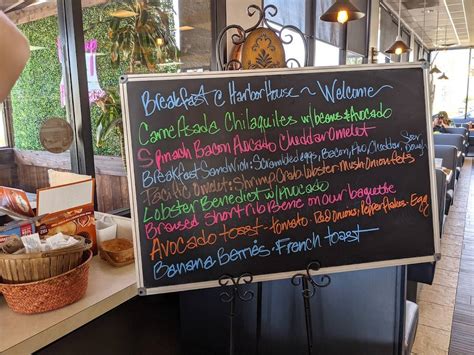 Breakfast @ Harbor House ~ Welcome ~
Carne Asada Chilaquiles w/beans & Avocado
Spinach Bacon Avocado Cheddar Omelet
Breakfast Sandwich: Scrambled eggs, Bacon, Avo, Cheddar, Sour Dough
Pacific Omelet: Shrimp Crab Lobster Mush Onion feta
Lobster Benedict w/ Avocado
Braised Short rib Bene on our baguette
Avocado toast - tomato - Red Onions, Pepper flakes - Egg
Banana Berries - French toast